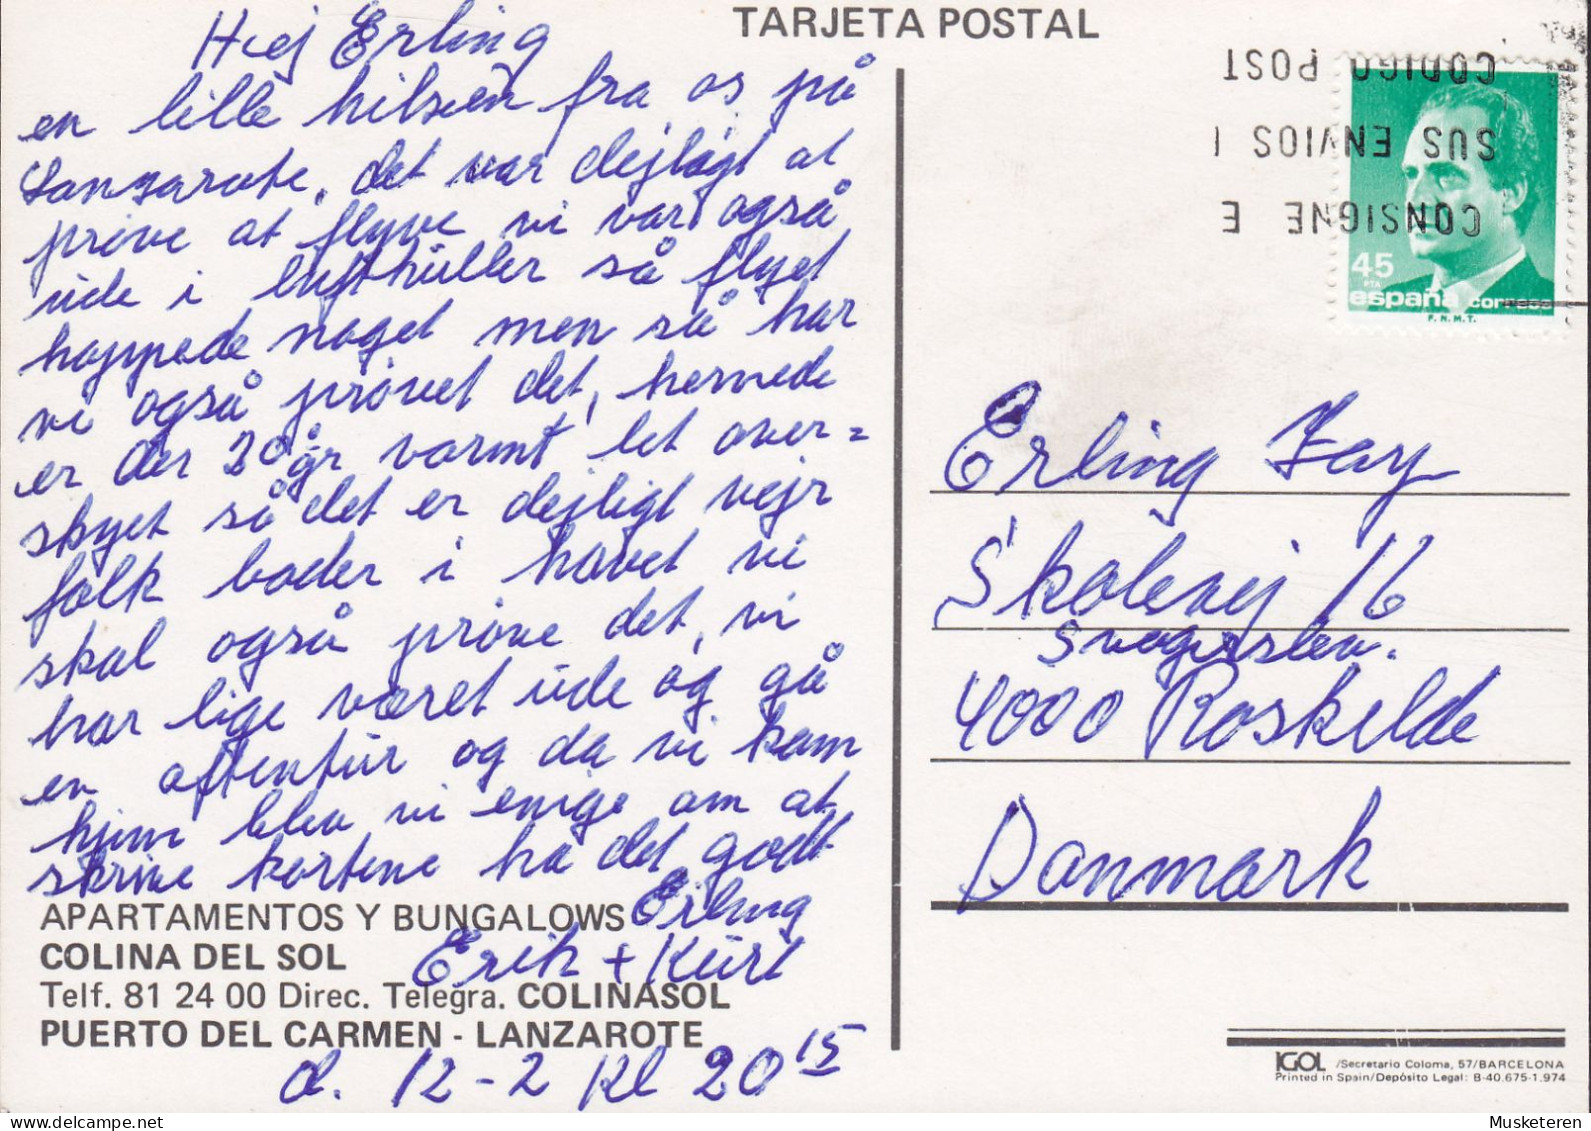 TARJETA POSTAL
Hej Erling
en lille hilsen fra os på
Lanzarote, det var dejligt at
prøve at flyve vi var også
ude i lufthuller så flyet
hoppede noget men så har
vi også prøvet det, hernede
er der 20 gr varmt let over=
skyet så det er dejligt vejr
folk bader i havet vi
skal også prøve det, vi
har lige været ude og gå
en aftentur og da vi kom
hjem blev vi enige om at
skrive kortene ha det godt
Erling
Erik + Kurt
APARTAMENTOS Y BUNGALOWS
COLINA DEL SOL
Telf. 81 24 00 Direc. Telegra. COLINASOL
PUERTO DEL CARMEN - LANZAROTE
d. 12-2 kl 20 15
CONSIGNE E
SUS ENVIOS
CODIGO POST
45
PTA
españa correos
F.N.M.T.
Erling Fay
Skolevej 16
Svogerslev.
4000 Roskilde
Danmark
IGOL /Secretario Coloma, 57/BARCELONA
Printed in Spain/Depósito Legal: B-40.675-1.974
Musketeren